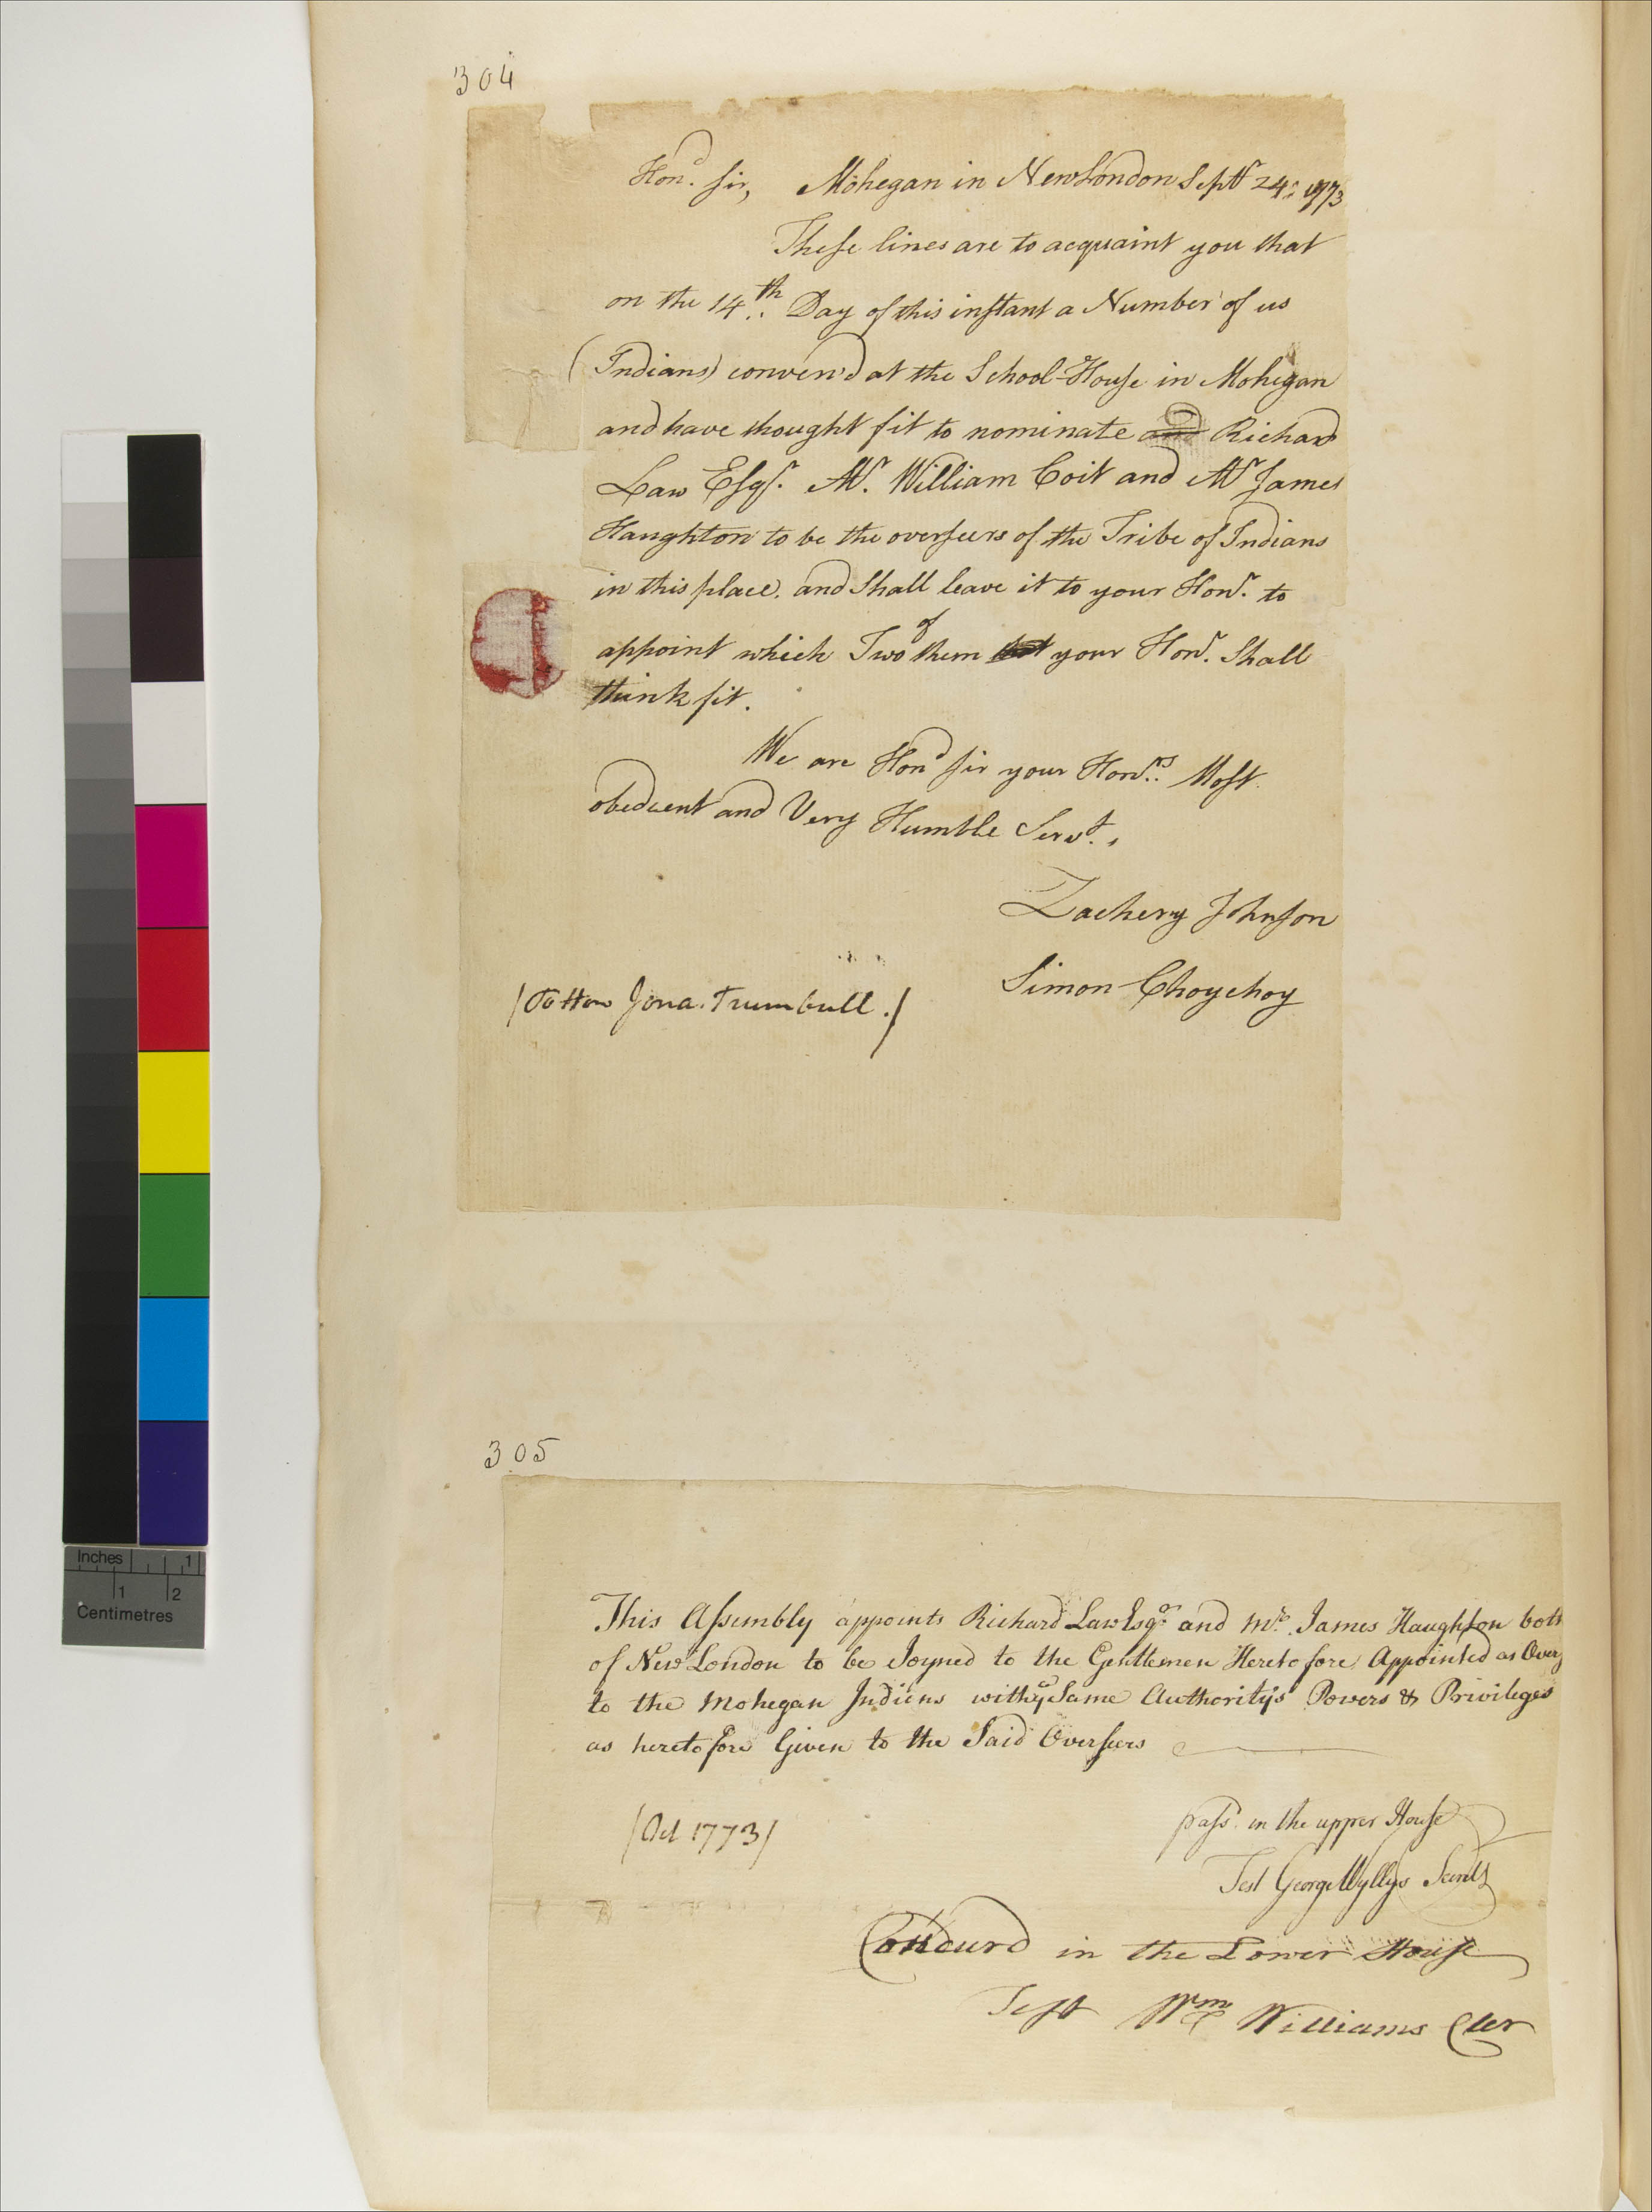 304
Hon.d Sir, Mohegan in New London Septr 24: 1773
These lines are to acquaint you that
on the 14th. Day of this instant a Number of us
(Indians) conven'd at the School-House in Mohegan
and have thought fit to nominate and Richard
Law Esqr. Mr. William Coit and Mr James
Haughton to be the overseers of the Tribe of Indians
in this place. and Shall leave it to your Honr. to
appoint which Two of them your Honr. Shall
think fit.
We are Hond Sir your Honrs. Most
obedient and Very Humble Servt.
Zachery Johnson
Simon Choychoy
(To Hon Jona. Trumbull.)
305
This Assembly appoints Richard Law Esqr and Mr. James Haughton both
of New London to be Joyned to the Gentlemen Heretofore Appointed as Overs
to the Mohegan Indiens with ye Same Authoritys Powers & Privileges
as heretofore Given to the Said Overseers
(Oct 1773)
pass'd in the upper House
Test George Wyllys Secrety
Concurd in the Lower House
Test Wm Williams Cler
Inches 1
1 2
Centimetres